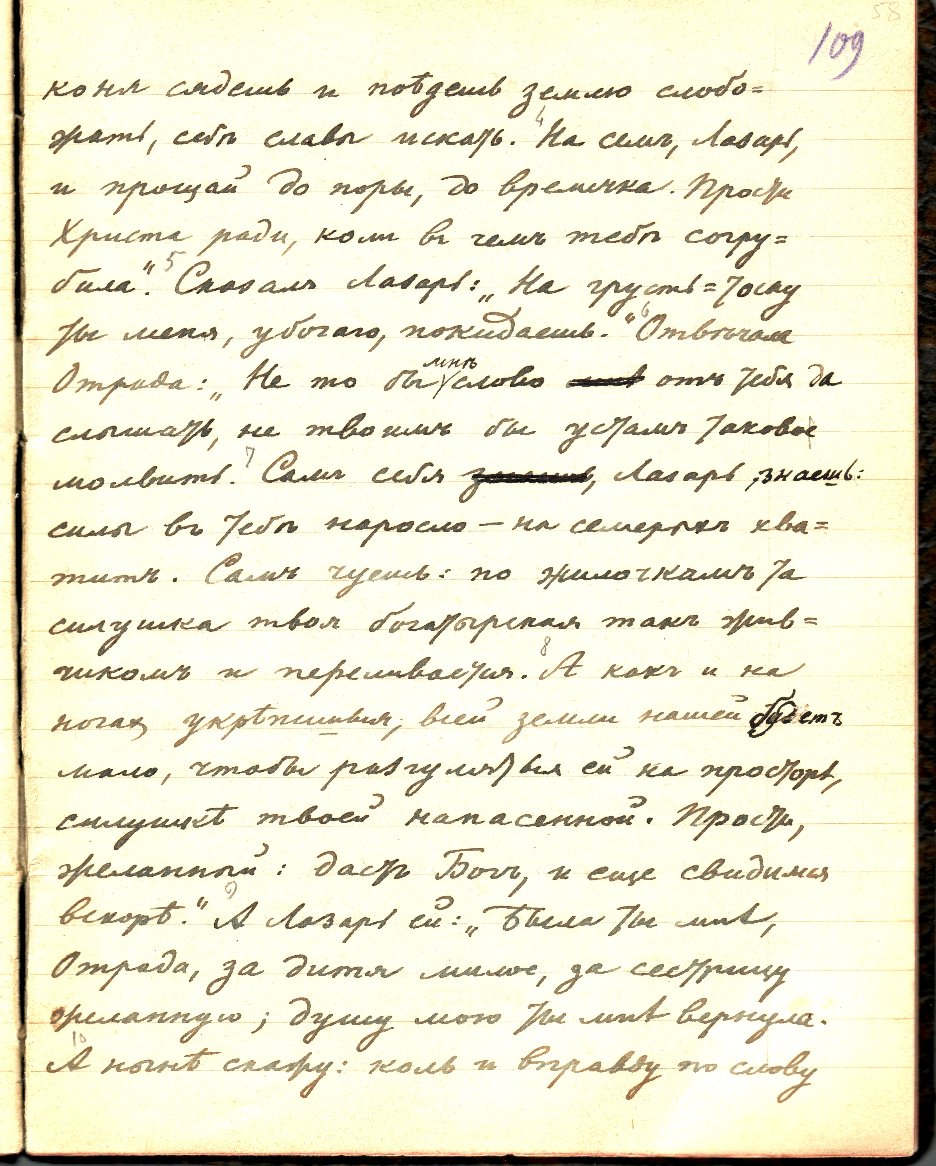 58
109
коня сядешь и поѣдешь землю слобо=
жать, себѣ славы искать. 4 На семъ, Лазарь,
и прощай до поры, до времячка. Прости
Христа ради, коли въ чемъ тебѣ согру=
била". 5 Сказалъ Лазарь: „На грусть=тоску
ты меня, убогаго, покидаешь." 6 Отвѣчала
Отрада: „Не то бы мнѣ слово отъ тебя да
слышать, не твоимъ бы устамъ таковое
молвить. 7 Самъ себя, Лазарь, знаешь:
силы въ тебѣ наросло — на семерыхъ хва=
титъ. Самъ чуешь: по жилочкамъ та
силушка твоя богатырская такъ жив=
чикомъ и переливается. 8 А какъ и на
ногах укрѣпишься, всей земли нашей будетъ
мало, чтобы разгуляться ей на просторѣ,
силушкѣ твоей напасенной. Прости,
желанный: дастъ Богъ, и еще свидимся
вскорѣ." 9 А Лазарь ей: „Была ты мнѣ,
Отрада, за дитя милое, за сестрицу
желанную; душу мою ты мнѣ вернула.
10 А нынѣ скажу: коль и вправду по слову